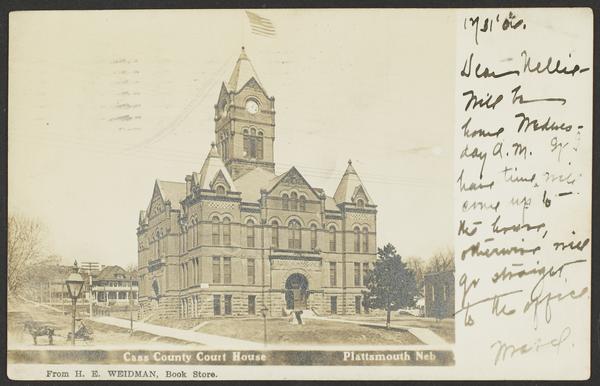 Dear Nellie-
Will be
home Wednes-
day A.M. If I
have time, will
come up to
the house,
otherwise will
go straight
to the office.
Cass County Court House Plattsmouth Neb
From H. E. WEIDMAN, Book Store.